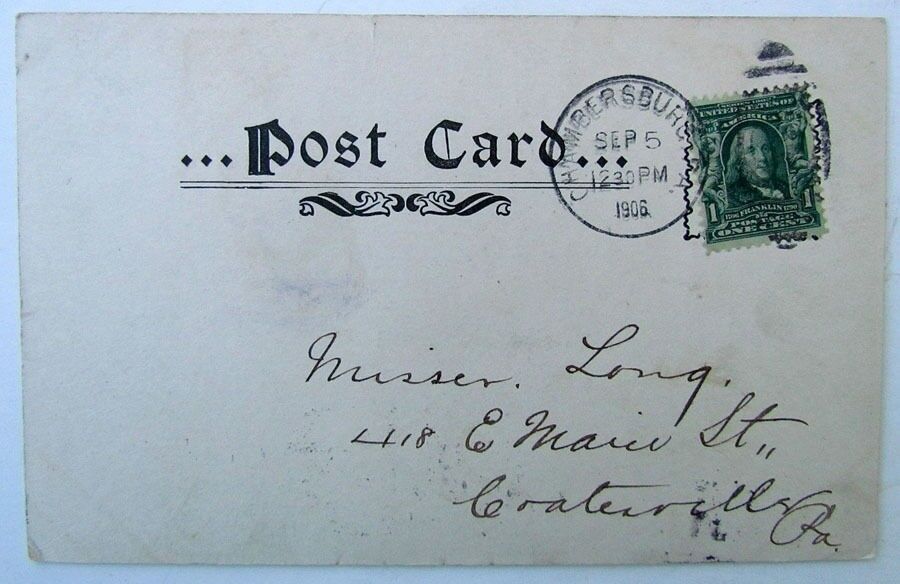 ...Post Card...
CHAMBERSBURG
SEP 5
1230PM
1906
UNITED STATES OF
AMERICA
1706 FRANKLIN 1790
1 POSTAGE 1
ONE CENT
Misses. Long.
418 E Main St.,
Coatesville
Pa.